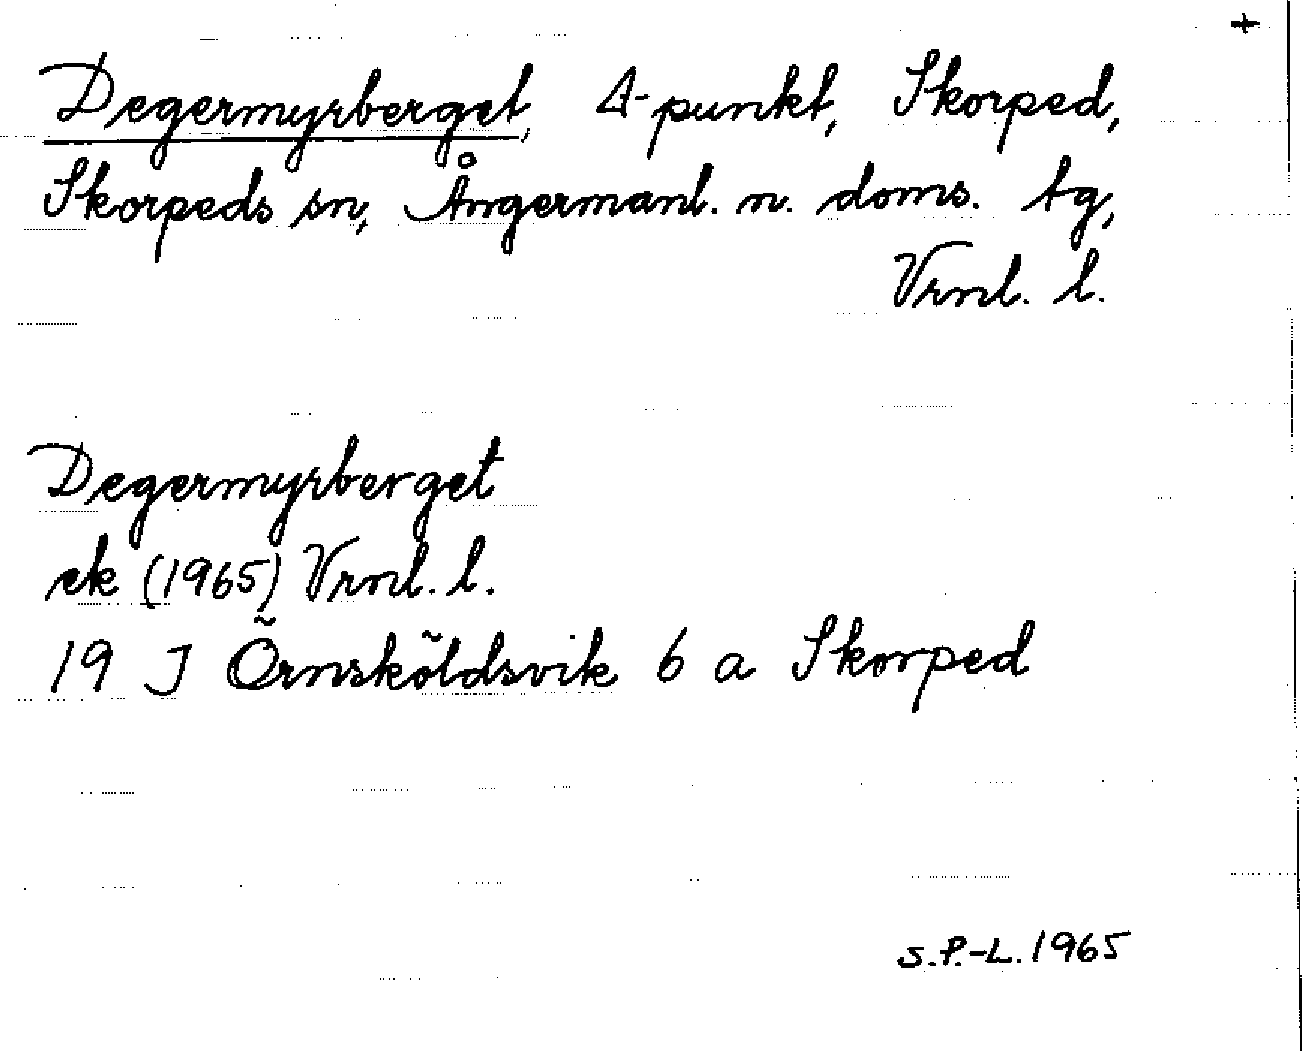 +
Degermyrberget, Δ-punkt, Skorped,
Skorpeds sn, Ångermanl. n. doms. tg,
Vrnl. l.
Degermyrberget
ek (1965) Vrnl. l.
19 J Örnsköldsvik 6 a Skorped
S.P.-L. 1965